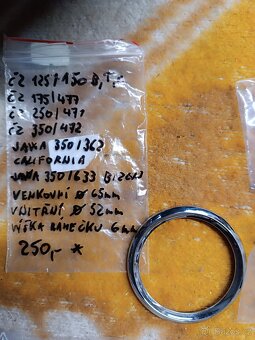 ČZ 125/150 B, T, C
ČZ 175/477
ČZ 250/471
ČZ 350/472
JAWA 350/362
CALIFORNIA
JAWA 350/633 BIZON
VENKOVNÍ Ø 65mm
VNITŘNÍ Ø 52mm
VÝŠKA RÁMEČKU 6mm
250,- *